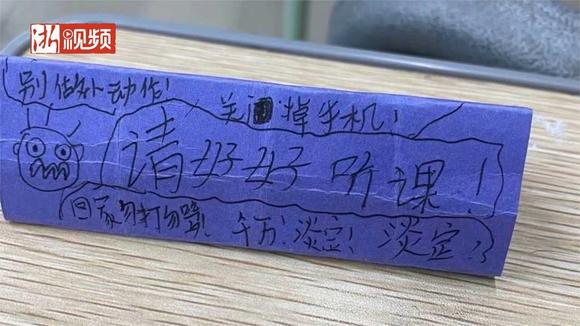 浙视频
别做小动作!
关掉手机!
请好好听课!
回家勿打勿骂! 千万!淡定!淡定!